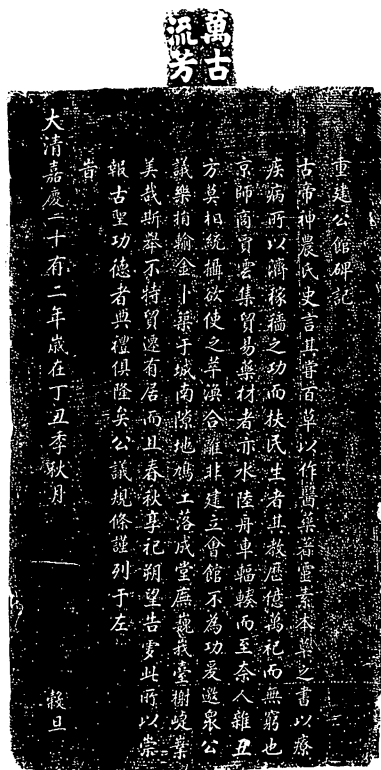 萬古
流芳
重建公館碑記
古帝神農氏史言其嘗百草以作醫藥著靈素本草之書以療
疾病所以濟稼穡之功而扶民生者其教歷億萬祀而無窮也
京師商賈雲集貿易藥材者亦水陸舟車輻輳而至奈人雜五
方莫相統攝欲使之萃渙合離非建立會館不為功爰邀眾公
議樂捐輸金卜築于城南隙地鳩工落成堂廡巍峩臺榭峻業
美哉斯舉不特貿遷有居而且春秋享祀朔望告虔此所以崇
報古聖功德者典禮俱隆矣公議規條謹列于左
旹
大清嘉慶二十有二年歲在丁丑季秋月 穀旦